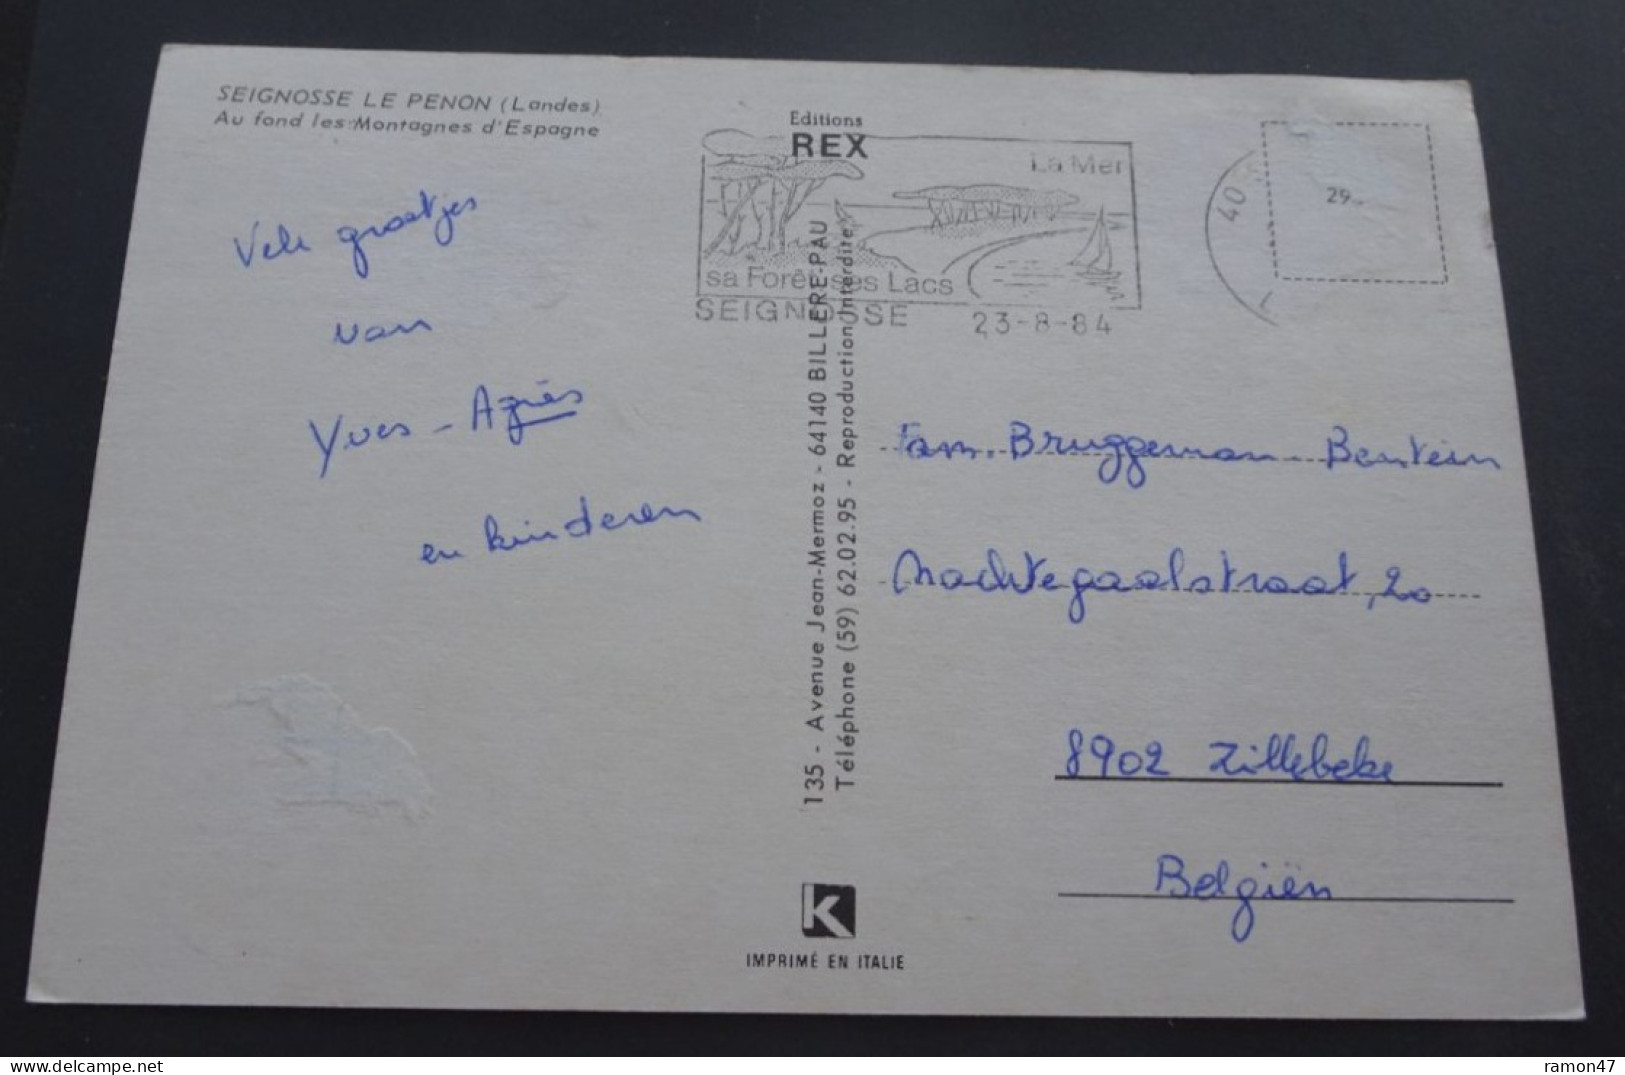 SEIGNOSSE LE PENON (Landes)
Au fond les Montagnes d'Espagne
Vele groetjes
van
Yves - Agnès
en kinderen
Editions
REX
La Mer
sa Forêt ses Lacs
SEIGNOSSE 23-8-84
40
29
135 - Avenue Jean-Mermoz - 64140 BILLERE-PAU
Téléphone (59) 62.02.95 - Reproduction Interdite
Fam. Bruggeman - Bentein
Nachtegaalstraat, 20
8902 Zillebeke
Belgiën
K
IMPRIMÉ EN ITALIE
ramon47